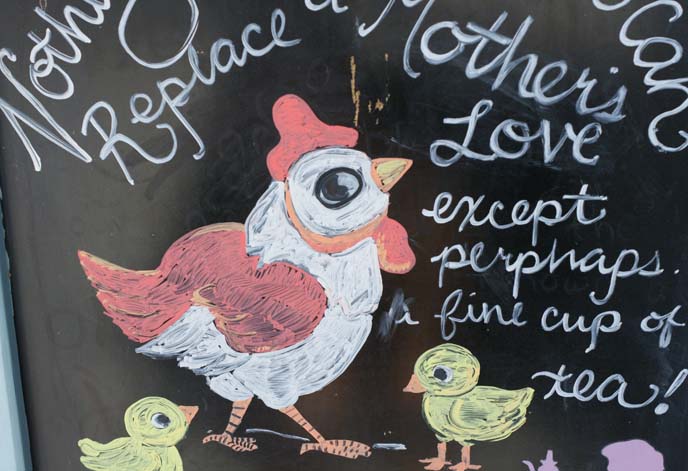 Nothing Can
Replace a Mother's
Love
except
perphaps.
a fine cup of
tea!